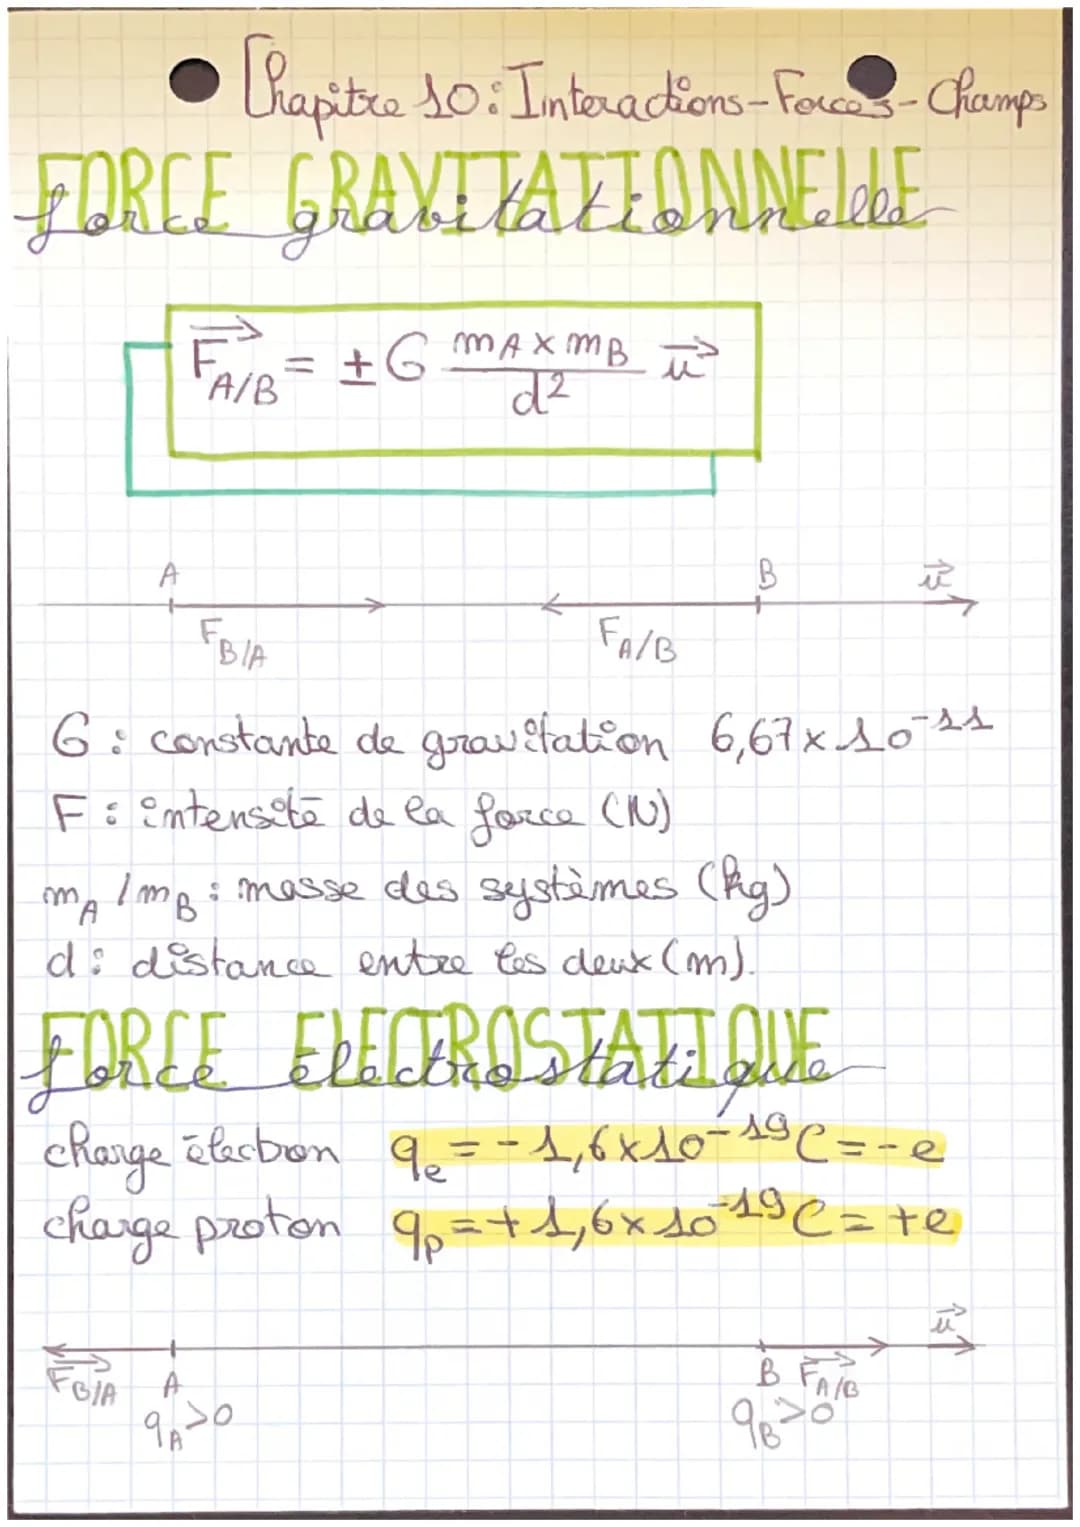 Chapitre 10: Interactions-Forces-Champs
FORCE GRAVITATIONNELLE
force gravitationnelle
F⃗A/B = ± G mA x mB / d² u⃗
A B u⃗
FB/A FA/B
G : constante de gravitation 6,67 x 10⁻¹¹
F : intensité de la force (N)
mA / mB : masse des systèmes (kg)
d : distance entre les deux (m).
FORCE ELECTROSTATIQUE
force électrostatique
charge électron qe = -1,6 x 10⁻¹⁹ C = -e
charge proton qp = +1,6 x 10⁻¹⁹ C = +e
u⃗
F⃗B/A A B F⃗A/B
qA>0 qB>0